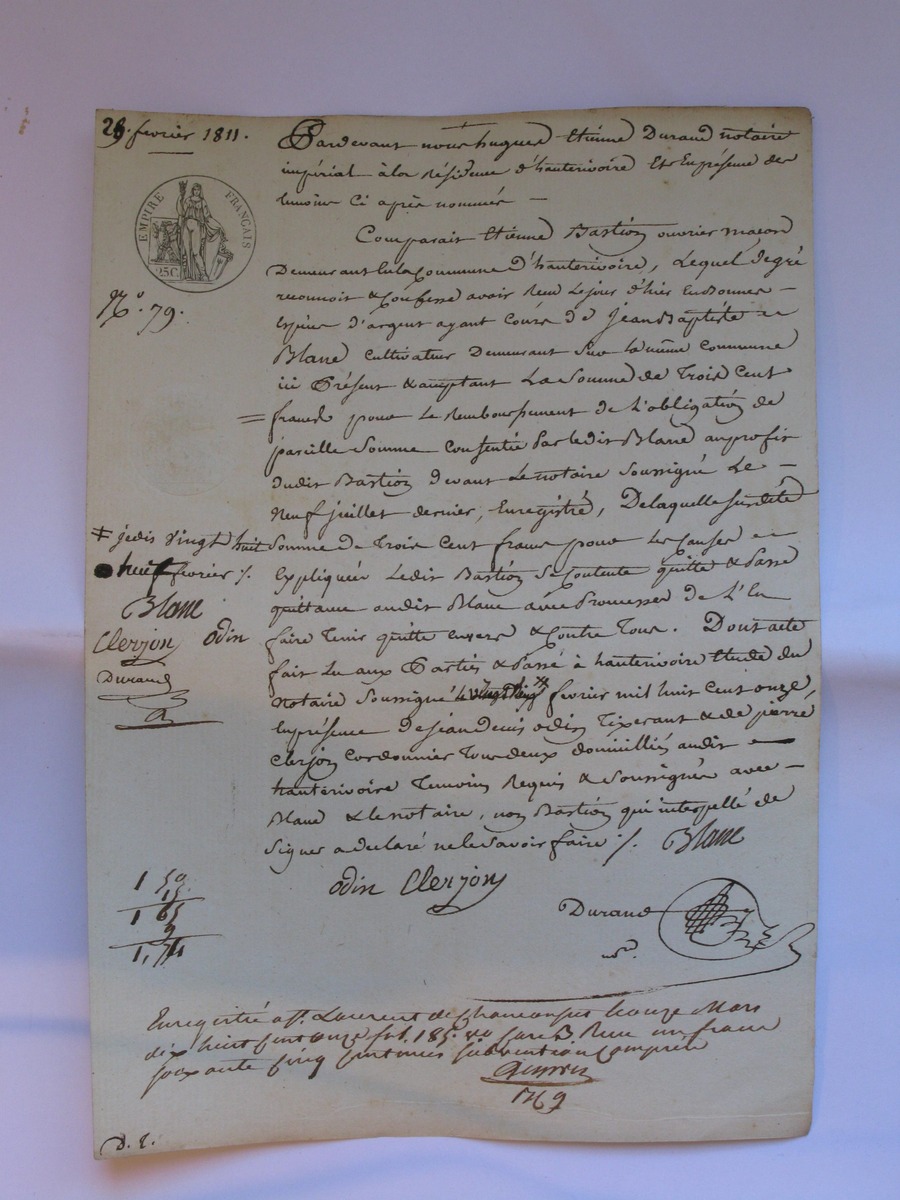 28. fevrier 1811.
EMPIRE FRANÇAIS
25 C.
N.° 79.
Pardevant nous hugues Etienne Durand notaire
impérial à la Résidence d'hauterivoire Et En présence des
temoins Ci après nommés —
Comparait Etienne Bastion ouvrier maçon
Demeurant En la Commune d'hauterivoire, Lequel de gré
reconnoit & Confesse avoir Reçu Le jour d'hier En bonnes —
Espèces d'argent ayant Cours de Jean Baptiste —
Blanc Cultivateur Demeurant Sur la même Commune
ici Présent & acceptant La Somme de Trois Cent
francs pour Le Remboursement de L'obligation de
pareille Somme Consentie Par ledit Blanc au profit
Dudit Bastion devant Le notaire Soussigné Le —
Neuf juillet dernier, Enregistré, De laquelle Susdite
Somme de Trois Cent francs pour les Causes —
Expliquées Ledit Bastion Se Contente quitte & Passe
quittance audit Blanc avec Promesse de L'En
faire Tenir quitte Envers & Contre Tous. Dont acte
fait Lu aux Parties & Passé à hauterivoire Etude du
Notaire Soussigné Le fevrier mil huit Cent onze,
En présence De jean Denis odin Tixerant & de pierre
Clerjon Cordonnier Tous deux domiciliés audit —
hauterivoire Temoins Requis & Soussignés avec —
Blanc & le notaire, non Bastion qui interpellé de
Signer a declaré ne le Savoir faire ./. Blanc
odin Clerjon
Durand
nre.
‡ jedis vingt huit
fevrier ./.
Blanc
Clerjon odin
Durand
1 50
15
1 65
9
1,74
Enregistré a St. Laurent de Chamousset le onze Mars
dix huit cent onze fol. 185. vo Case 3 Reçu un franc
soixante cinq centimes subvention Comprise
D. E.